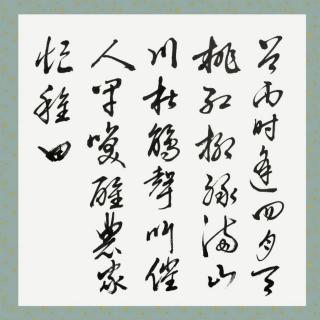 谷雨时逢四月天
桃红柳绿满山
川杜鹃聲叫催
人早唤醒農家
忙種田